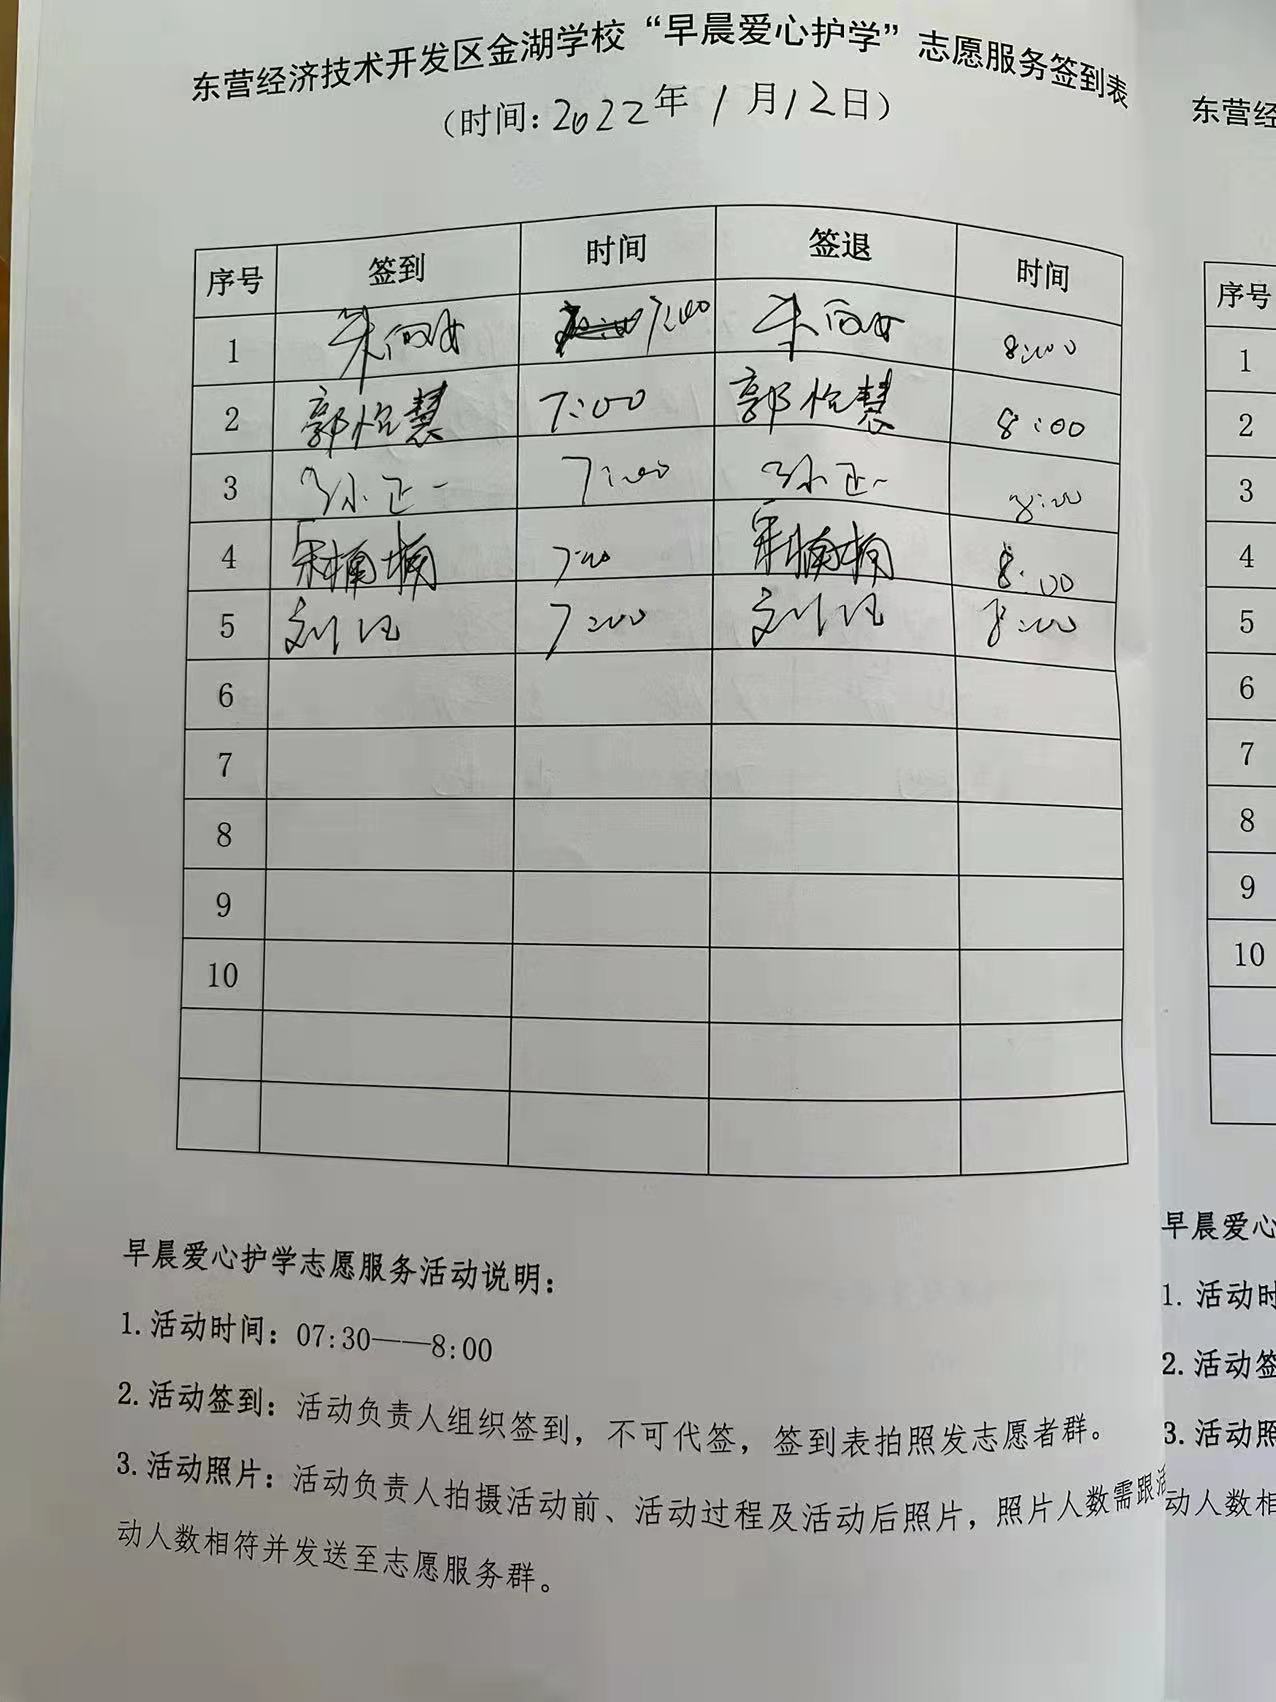 东营经济技术开发区金湖学校“早晨爱心护学”志愿服务签到表
（时间：2022年1月12日）
序号 签到 时间 签退 时间
1 7:00 8:00
2 郭怡慧 7:00 郭怡慧 8:00
3 孙正一 7:00 孙正一 8:00
4 宋楠楠 7:00 宋楠楠 8:00
5 7:00 8:00
6
7
8
9
10
早晨爱心护学志愿服务活动说明：
1.活动时间：07:30——8:00
2.活动签到：活动负责人组织签到，不可代签，签到表拍照发志愿者群。
3.活动照片：活动负责人拍摄活动前、活动过程及活动后照片，照片人数需跟活
动人数相符并发送至志愿服务群。
东营经
序号
1
2
3
4
5
6
7
8
9
10
早晨爱心
1.活动时
2.活动签
3.活动照
动人数相